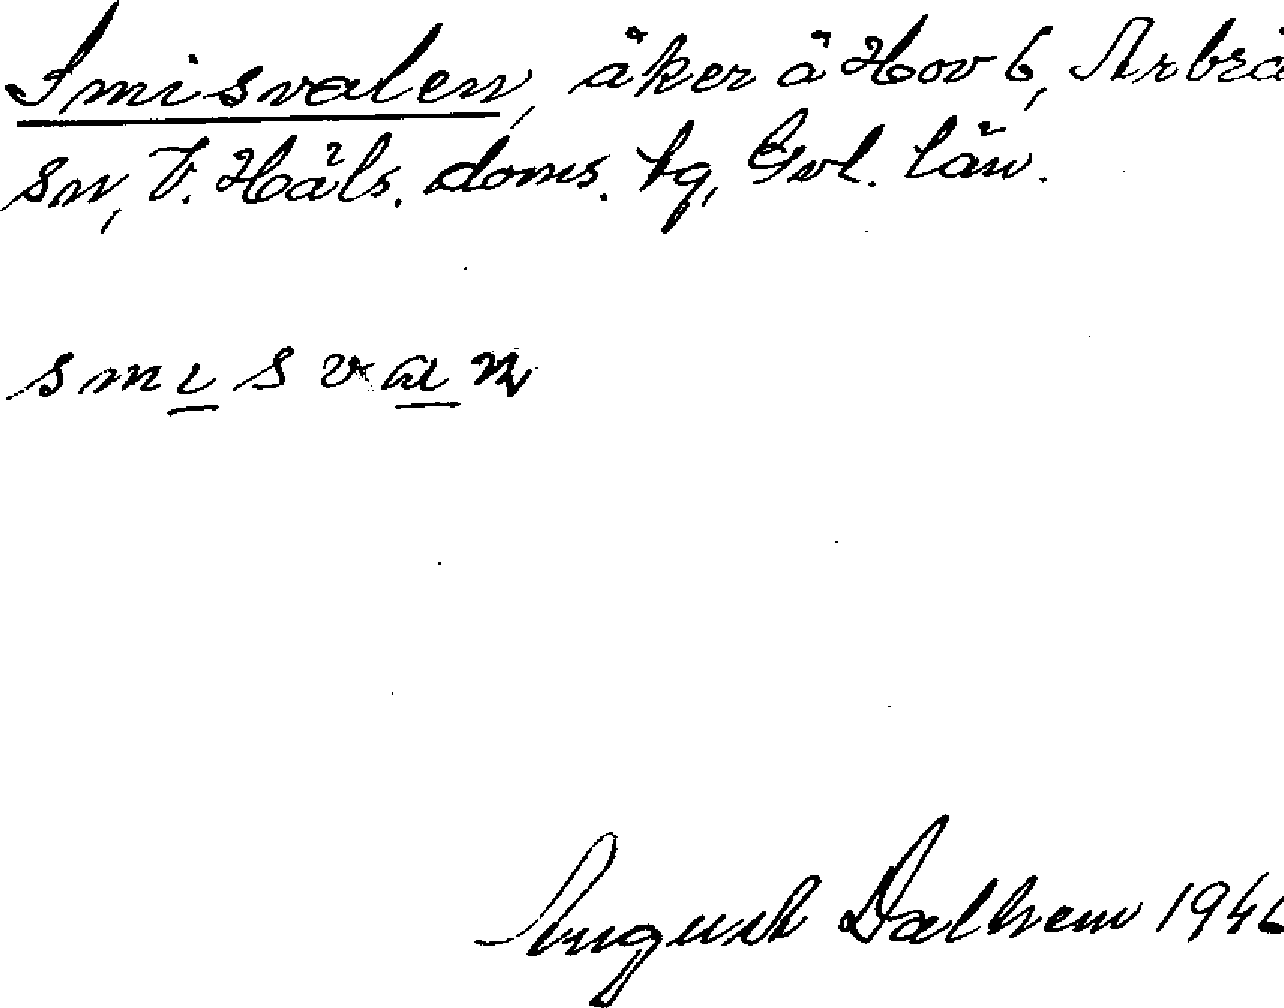 Smisvalen, åker å Hov 6, Arbrå
sn, V. Häls. doms. tg, Gvl. län.
smısvan
August Dalhem 194